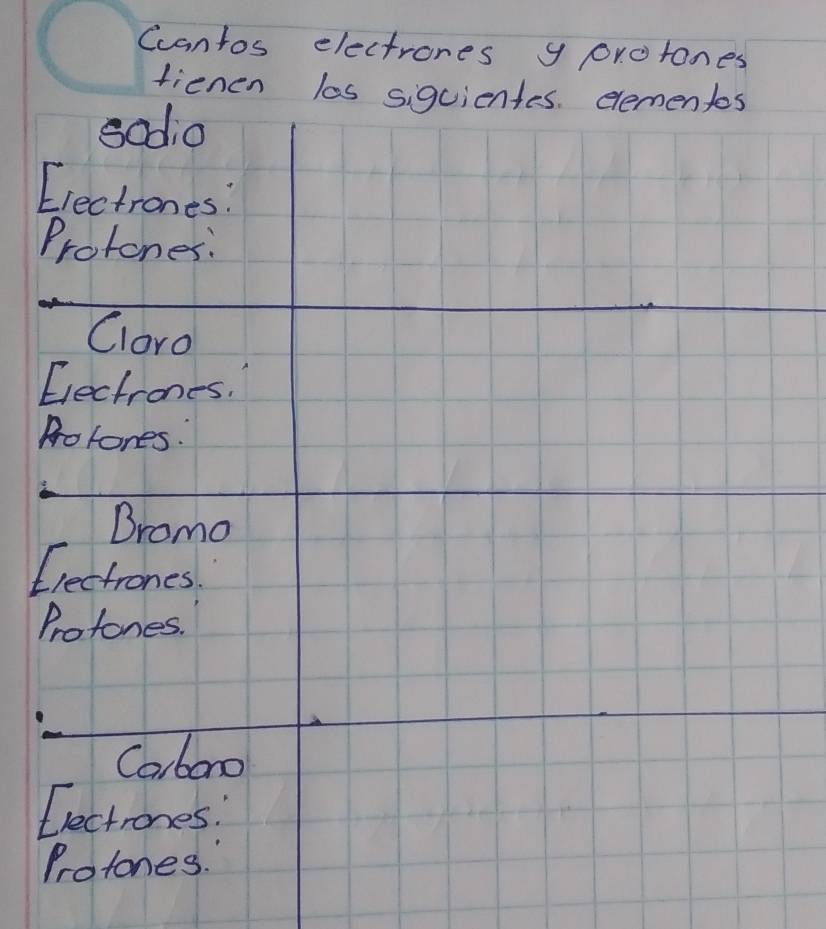 Cuantos electrones y protones
tienen los siguientes. elementos
sodio
Electrones:
Protones:
Cloro
Electrones:
Protones:
Bromo
Electrones:
Protones:
Carbono
Electrones:
Protones: